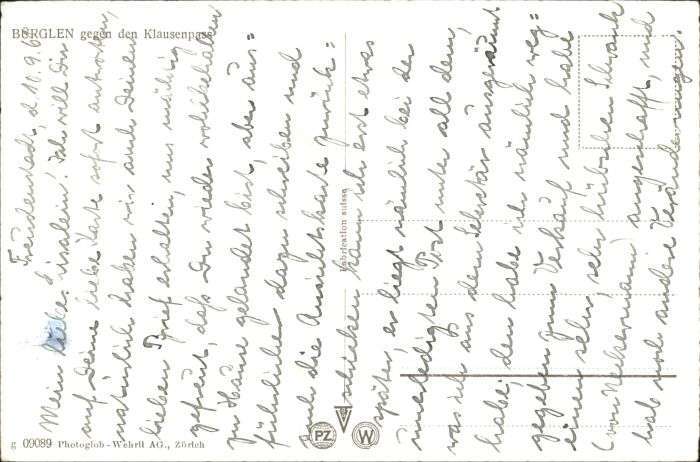 BÜRGLEN gegen den Klausenpass
Freudenstadt, d. 10.9.6
Mein liebes Ursalein! Ich will Dir
auf Deine liebe Karte sofort antworten,
natürlich haben wir auch Deinen
lieben Brief erhalten, uns mächtig
gefreut, daß Du wieder wohlbehalten
zu Hause gelandet bist, aber aus=
führlicher dazu schreiben und
und die Ansichtskarte zurück=
schicken kann ich erst etwas
später, es liegt nämlich bei der
unerledigten Post unter all dem,
was ich aus dem Sekretär ausgeräumt
habe, den habe ich nämlich weg=
gegeben zum Verkauf und habe
einen sehr, sehr hübschen Schrank
(von Neckermann) angeschafft, und
hab noch andre Veränderungen.
Fabrication suisse
PZ
W
g 09089 Photoglob-Wehrli AG., Zürich